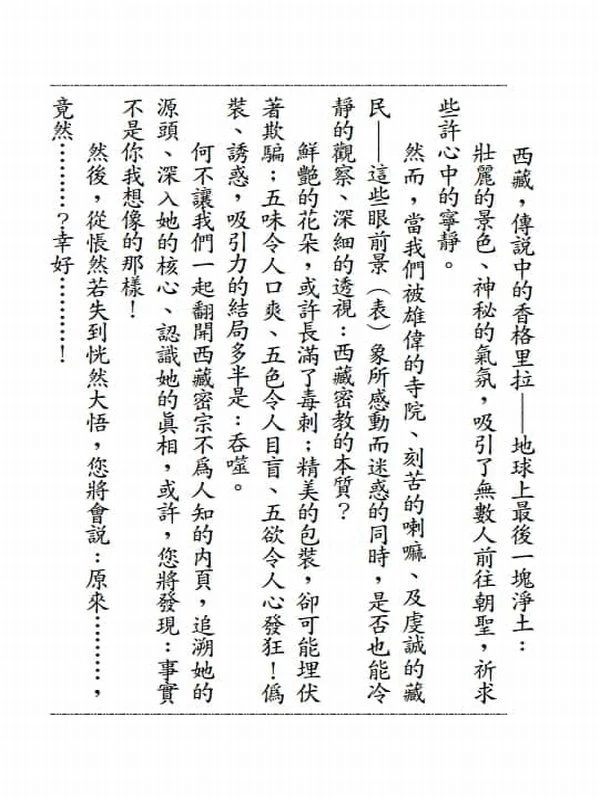 西藏，傳説中的香格里拉——地球上最後一塊淨土：
壯麗的景色、神秘的氣氛，吸引了無數人前往朝聖，祈求
些許心中的寧靜。
然而，當我們被雄偉的寺院、刻苦的喇嘛、及虔誠的藏
民——這些眼前景（表）象所感動而迷惑的同時，是否也能冷
靜的觀察、深細的透視：西藏密教的本質？
鮮艷的花朵，或許長滿了毒刺；精美的包裝，卻可能埋伏
著欺騙；五味令人口爽、五色令人目盲、五欲令人心發狂！僞
裝、誘惑，吸引力的結局多半是：吞噬。
何不讓我們一起翻開西藏密宗不爲人知的内頁，追溯她的
源頭、深入她的核心、認識她的眞相，或許，您將發現：事實
不是你我想像的那樣！
然後，從悵然若失到恍然大悟，您將會説：原來…………，
竟然…………？幸好…………！